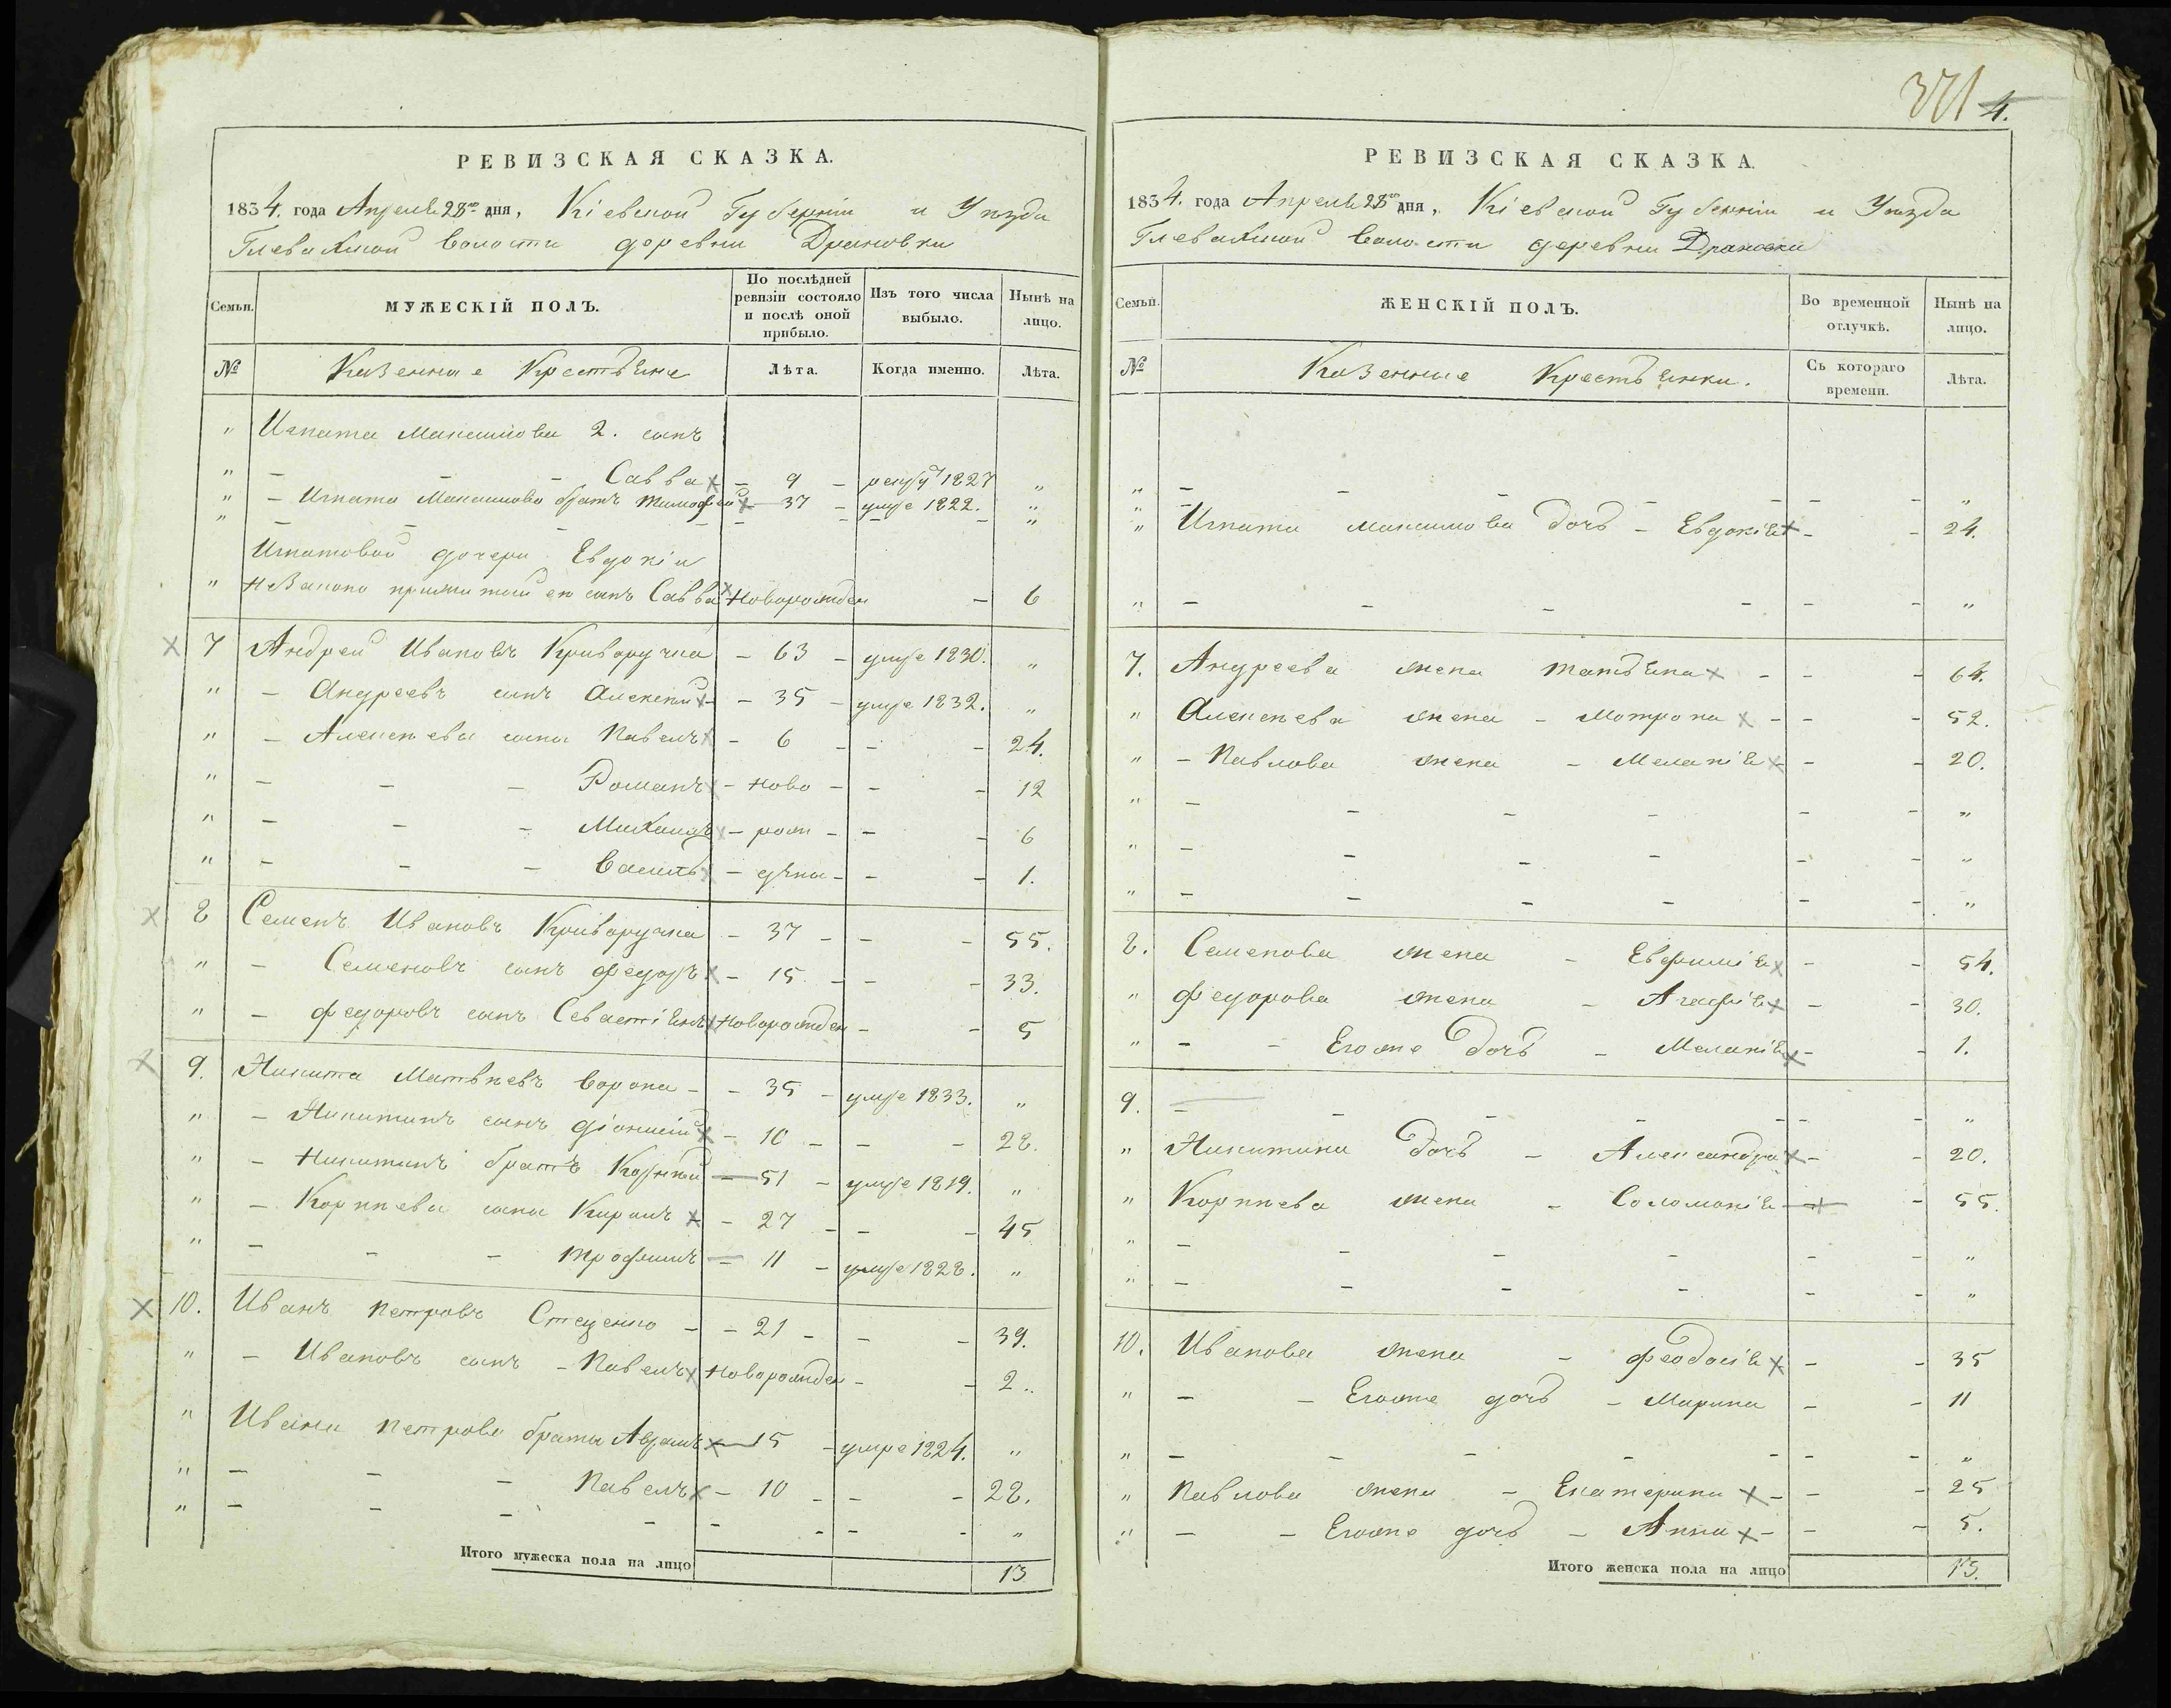 РЕВИЗСКАЯ СКАЗКА.
1834. года Апреля 28го дня, Кіевской Губерніи и Уѣзда
Глевахской Волости деревни Драновки
Семьи. МУЖЕСКІЙ ПОЛЪ. По послѣдней ревизіи состояло и послѣ оной прибыло. Изъ того числа выбыло. Нынѣ на лицо.
№ Казенные Крестьяне Лѣта. Когда именно. Лѣта.
" Игната Максимова 2. сынъ
" - - - Савва х - 9 - рекру 1827 "
" - Игната Максимова братъ Тимофей х 37 - умре 1822. "
" - - - - - - - "
Игнатовой дочери Евдокіи
" Незаконо прижитый ею сынъ Савва х Новорожден - 6
х 7 Андрей Ивановъ Криворучка - 63 - умре 1830. "
" - Андреевъ сынъ Алексей х - 35 - умре 1832. "
" - Алексеева сыны Павелъ х - 6 - - - 24.
" - - - Романъ х - Ново - - - 12
" - - - Михаилъ х - рож - - - 6
" - - - Василь х - дены - - - 1.
х 8 Семенъ Ивановъ Криворучка - 37 - - - 55.
" - Семеновъ сынъ Федоръ х - 15 - - - 33.
" - Федоровъ сынъ Севастіянъ х Новорожден - - 5
х 9. Никита Матвѣевъ Ворона - - 35 - умре 1833. "
" - Никитинъ сынъ Діонисій х - 10 - - - 28.
" - Никитинъ братъ Корнѣй - 51 - умре 1819. "
" - Корнѣева сыны Кирилъ х - 27 - - - 45
" - - - Трофимъ - 11 - умре 1828. "
х 10. Иванъ Петровъ Стеценко - - 21 - - - 39.
" - Ивановъ сынъ - Павелъ х Новорожден - - 2.
" Ивана Петрова браты Аврамъ х 15 - умре 1824. "
" - - - Павелъ х - 10 - - - 28.
" - - - - - - - - "
Итого мужеска пола на лицо 13
371 4.
РЕВИЗСКАЯ СКАЗКА.
1834. года Апреля 28го дня, Кіевской Губерніи и Уѣзда
Глевахской Волости деревни Драновки
Семьи. ЖЕНСКІЙ ПОЛЪ. Во временной отлучкѣ. Нынѣ на лицо.
№ Казенные Крестьянки. Съ котораго времени. Лѣта.
" - - - - - - - "
" - - "
" Игната Максимова дочь - Евдокія х - - 24.
" - - - - - - "
7. Андреева жена Татьяна х - - - 64.
" Алексеева жена - Мотрона х - - - 52.
" - Павлова жена - Меланія х - - 20.
" - - - - - - "
" - - - - - - "
" - - - - - - "
8. Семенова жена - Евфимія х - - 54.
" Федорова жена - Агафія х - - 30.
" - - Егоже дочь - Меланія х - - 1.
9. - - - - - - - "
" Никитина дочь - Александра х - - 20.
" Корнѣева жена - Соломонія - х - 55.
" - - - - - - "
" - - - - - - "
10. Иванова жена - Феодосія х - - 35
" - - Егоже дочь - Марина - - 11
" - - - - - - - "
" Павлова жена - Екатерина х - - - 25
" - - Егоже дочь - Анна х - - - 5.
Итого женска пола на лицо 13.